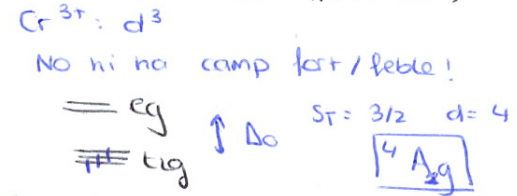 Cr³⁺: d³
No hi ha camp fort/feble!
eg
↑ Δo
S_T = 3/2 d = 4
t₂g
⁴A₂g